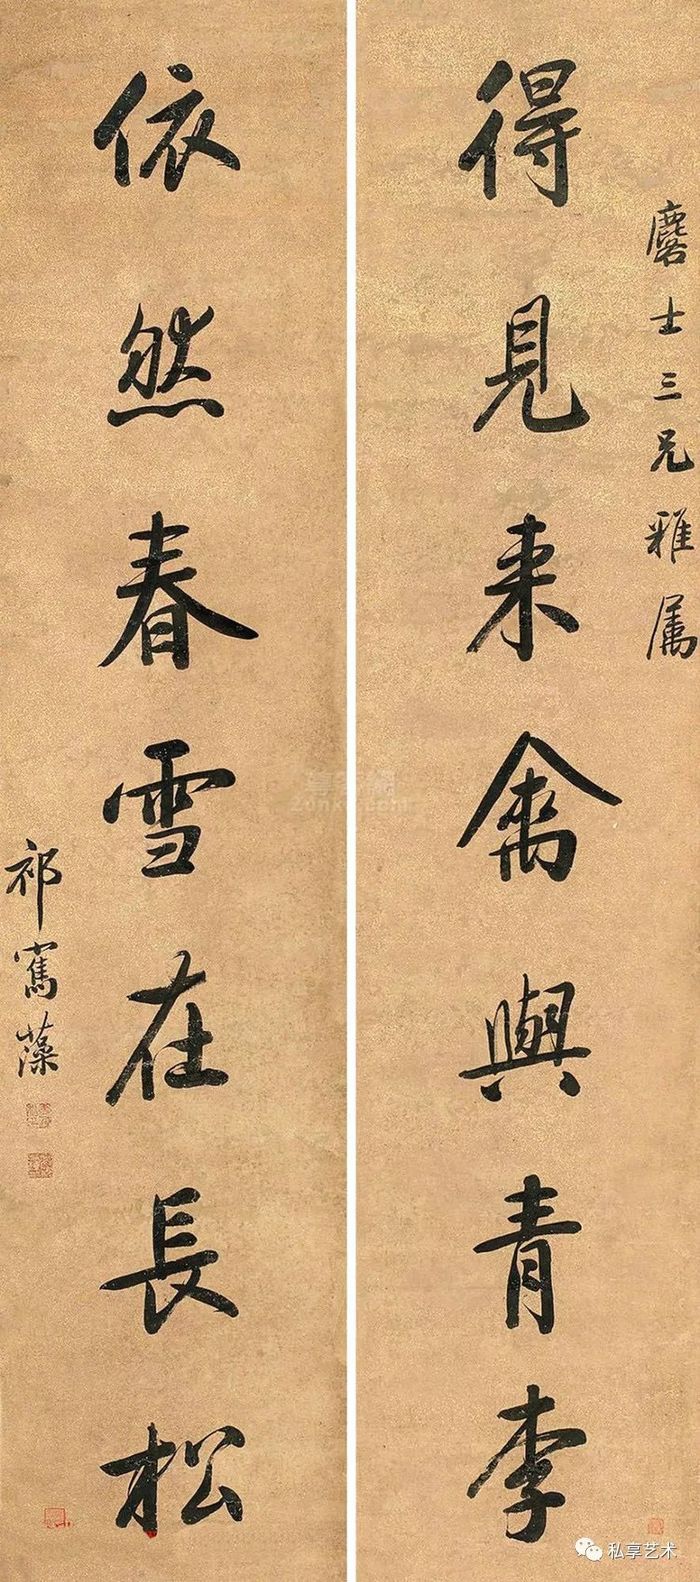 麐士三兄雅属
得見来禽與青李
依然春雪在長松
祁寯藻
私享艺术